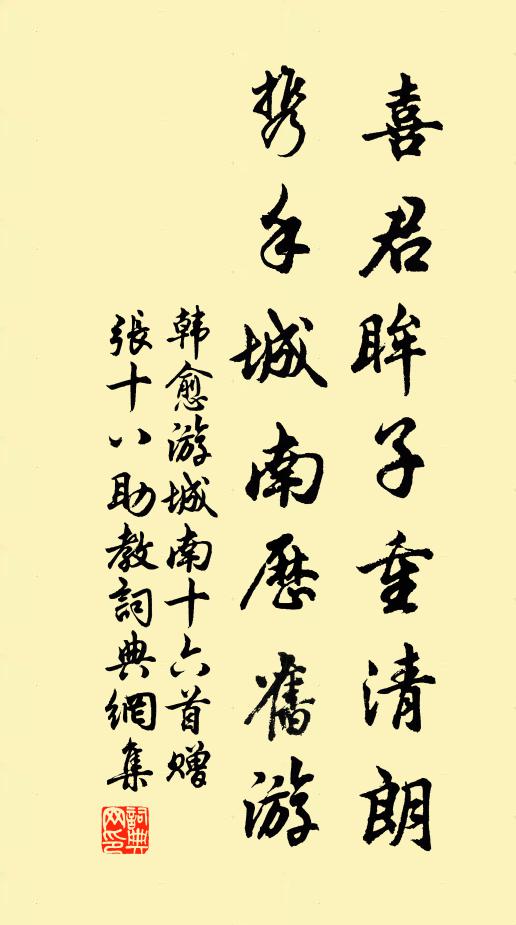 喜君眸子重清朗
携手城南歷舊游
韩愈游城南十六首赠
張十八助教詞典網集
詞典
网印